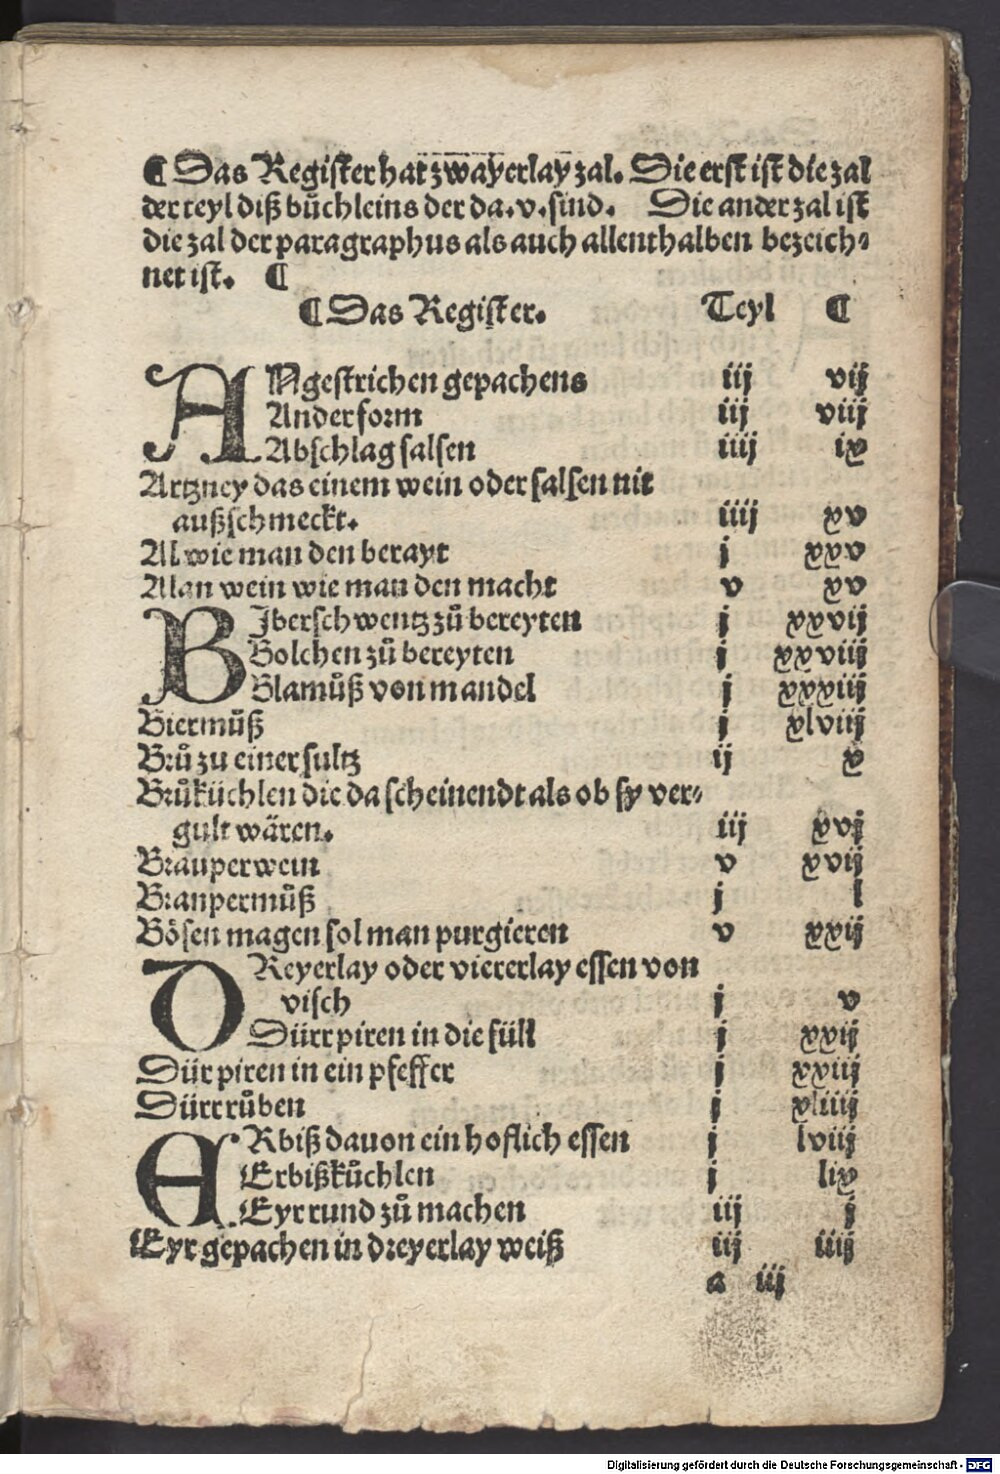 ¶ Das Register hat zwayerlay zal. Die erst ist die zal
der teyl diß bůchleins der da .v. sind. Die ander zal ist
die zal der paragraphus als auch allenthalben bezeich⸗
net ist. ¶
¶ Das Register. Teyl ¶
ANgestrichen gepachens iij vij
Ander form iij viij
Abschlag salsen iiij ix
Artzney das einem wein oder salsen nit
außschmeckt. iiij xv
Al wie man den berayt j xxv
Alan wein wie man den macht v xv
BJberschwentz zů bereyten j xxvij
Bolchen zů bereyten j xxviij
Blamůß von mandel j xxxiij
Biermůß j xlviij
Brů zu einer sultz ij x
Brůküchlen die da scheinendt als ob sy ver⸗
gult wären. iij xvj
Brauperwein v xvij
Branpermůß j l
Bösen magen sol man purgieren v xxij
DReyerlay oder viererlay essen von
visch j v
Dürr piren in die füll j xxij
Dür piren in ein pfeffer j xxiij
Dürr růben j xliiij
ERbiß dauon ein hoflich essen j lviij
Erbißkůchlen j lix
Eyr rund zů machen iij j
Eyr gepachen in dreyerlay weiß iij iiij
a iij
Digitalisierung gefördert durch die Deutsche Forschungsgemeinschaft - DFG